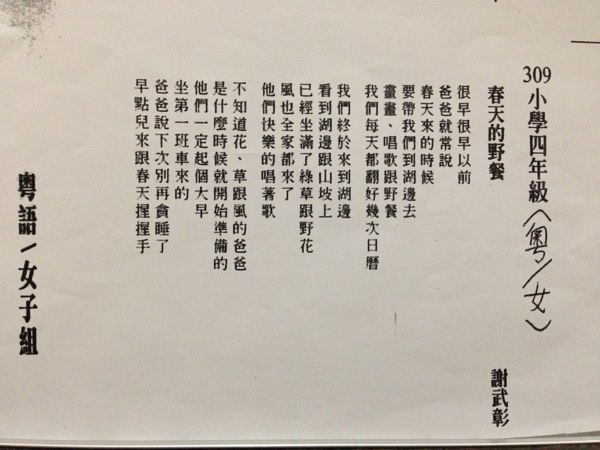 309 小學四年級〈粵/女〉
春天的野餐 謝武彰
很早很早以前
爸爸就常說
春天來的時候
要帶我們到湖邊去
畫畫、唱歌跟野餐
我們每天都翻好幾次日曆
我們終於來到湖邊
看到湖邊跟山坡上
已經坐滿了綠草跟野花
風也全家都來了
他們快樂的唱著歌
不知道花、草跟風的爸爸
是什麼時候就開始準備的
他們一定起個大早
坐第一班車來的
爸爸說下次別再貪睡了
早點兒來跟春天握握手
粵語/女子組